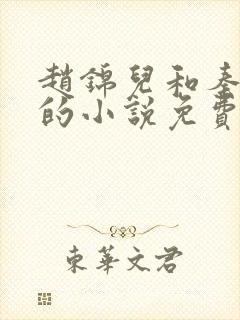 趙錦兒和秦
的小說免費
東華文君